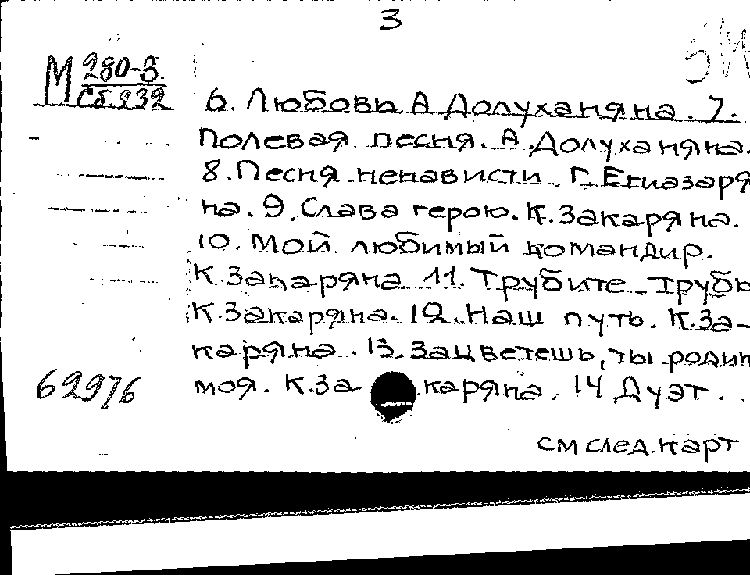 3
М 280-3.
Сб.232
6. Любовь А Долуханяна. 7.
Полевая песня. А.Долуханяна.
8.Песня ненависти Г.Егиазаря
на. 9. Слава герою. К.Закаряна.
10. Мой любимый командир.
К.Закаряна 11. Трубите трубы
К.Закаряна. 12. Наш путь. К.За-
каряна. 13. Зацветешь, ты родин
моя. К.За каряна. 14 Дуэт . .
62976
см след.карт